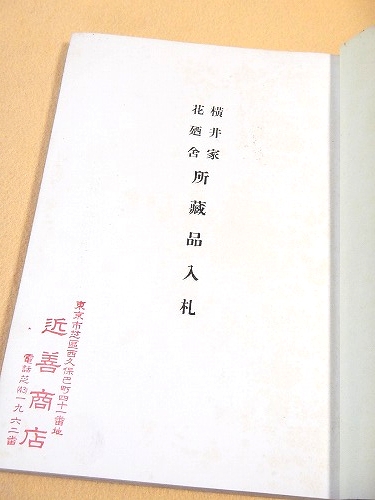 横井家
花廼舎
所藏品入札
東京市芝區西久保巴町四十一番地
近善商店
電話芝㈹一九六二番